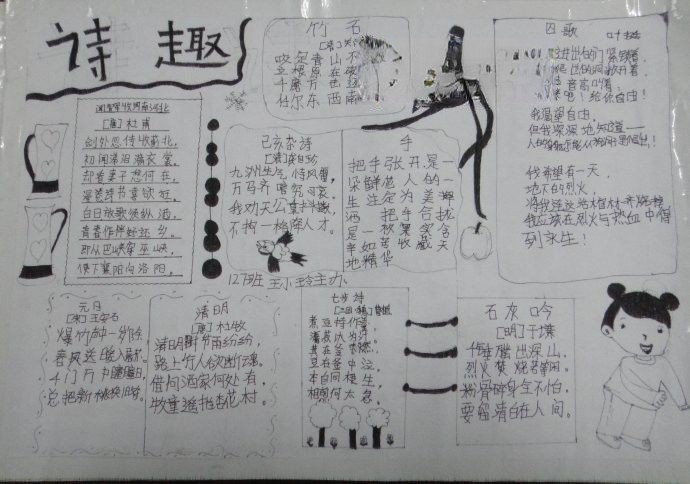 诗趣
竹石
咬定青山不
立根原在破
千磨万
任尔东西南
囚歌
叶挺
进出的门紧锁着，
爬出的洞敞开着，
音高叫着，
吧！给你自由！
我渴望自由，
但我深深地知道——
我希望有一天，
地下的烈火，
我应该在烈火与热血中得
到永生！
闻官军收河南河北
[唐]杜甫
剑外忽传收蓟北，
初闻涕泪满衣裳。
却看妻子愁何在，
漫卷诗书喜欲狂。
白日放歌须纵酒，
青春作伴好还乡。
即从巴峡穿巫峡，
便下襄阳向洛阳。
己亥杂诗
[清]龚自珍
九洲生气恃风雷，
万马齐喑究可哀。
我劝天公重抖擞，
不拘一格降人才。
手
把手张开是一
朵鲜
人的一
生注定为美
酒
把手合拢
是一
果实含
辛如苦收藏天
地精华
127班
主办
元日
[宋]王安石
爆竹声中一岁除
春风送暖入屠苏。
千门万户曈曈日，
总把新桃换旧符。
清明
[唐]杜牧
清明时节雨纷纷，
路上行人欲断魂。
借问酒家何处有，
牧童遥指杏花村。
七步诗
煮豆持作羹，
漉菽以为汁
萁在釜
豆在釜中泣。
本自同根生，
相煎何太急。
石灰吟
[明]于谦
千锤
出深山，
烈火焚烧若等闲。
粉骨碎身全不怕，
要留清白在人间。